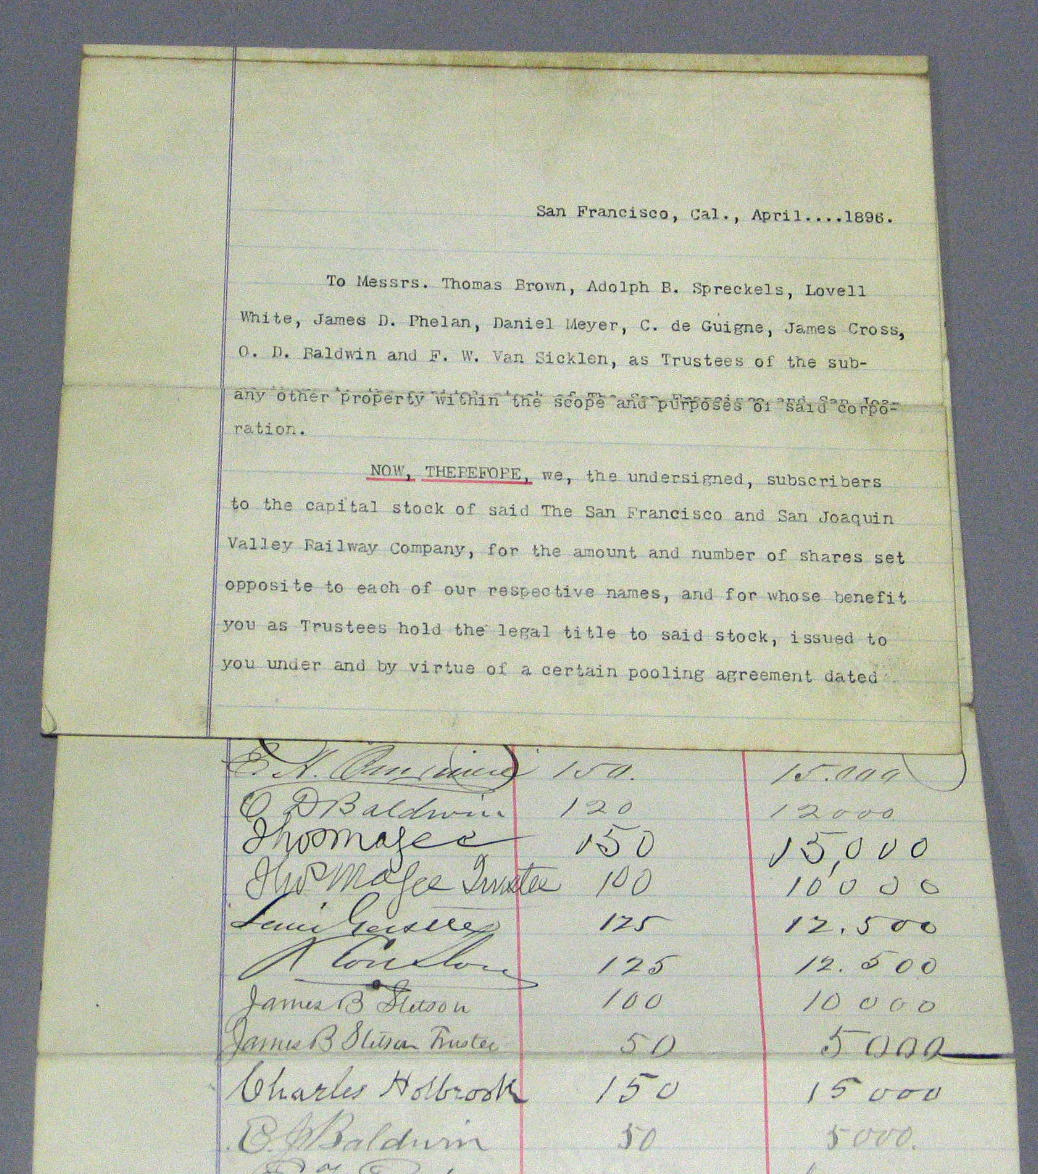 San Francisco, Cal., April....1896.
To Messrs. Thomas Brown, Adolph B. Spreckels, Lovell
White, James D. Phelan, Daniel Meyer, C. de Guigne, James Cross,
O. D. Baldwin and F. W. Van Sicklen, as Trustees of the sub-
any other property within the scope and purposes of said corpo-
ration.
NOW, THEREFORE, we, the undersigned, subscribers
to the capital stock of said The San Francisco and San Joaquin
Valley Railway Company, for the amount and number of shares set
opposite to each of our respective names, and for whose benefit
you as Trustees hold the legal title to said stock, issued to
you under and by virtue of a certain pooling agreement dated
150. 15.000
O D Baldwin 120 12000
Thos Magee 150 15,000
Thos Magee Trustee 100 10000
125 12.500
125 12.500
James B Stetson 100 10000
James B Stetson Trustee 50 5000
Charles Holbrook 150 15000
E J Baldwin 50 5000.